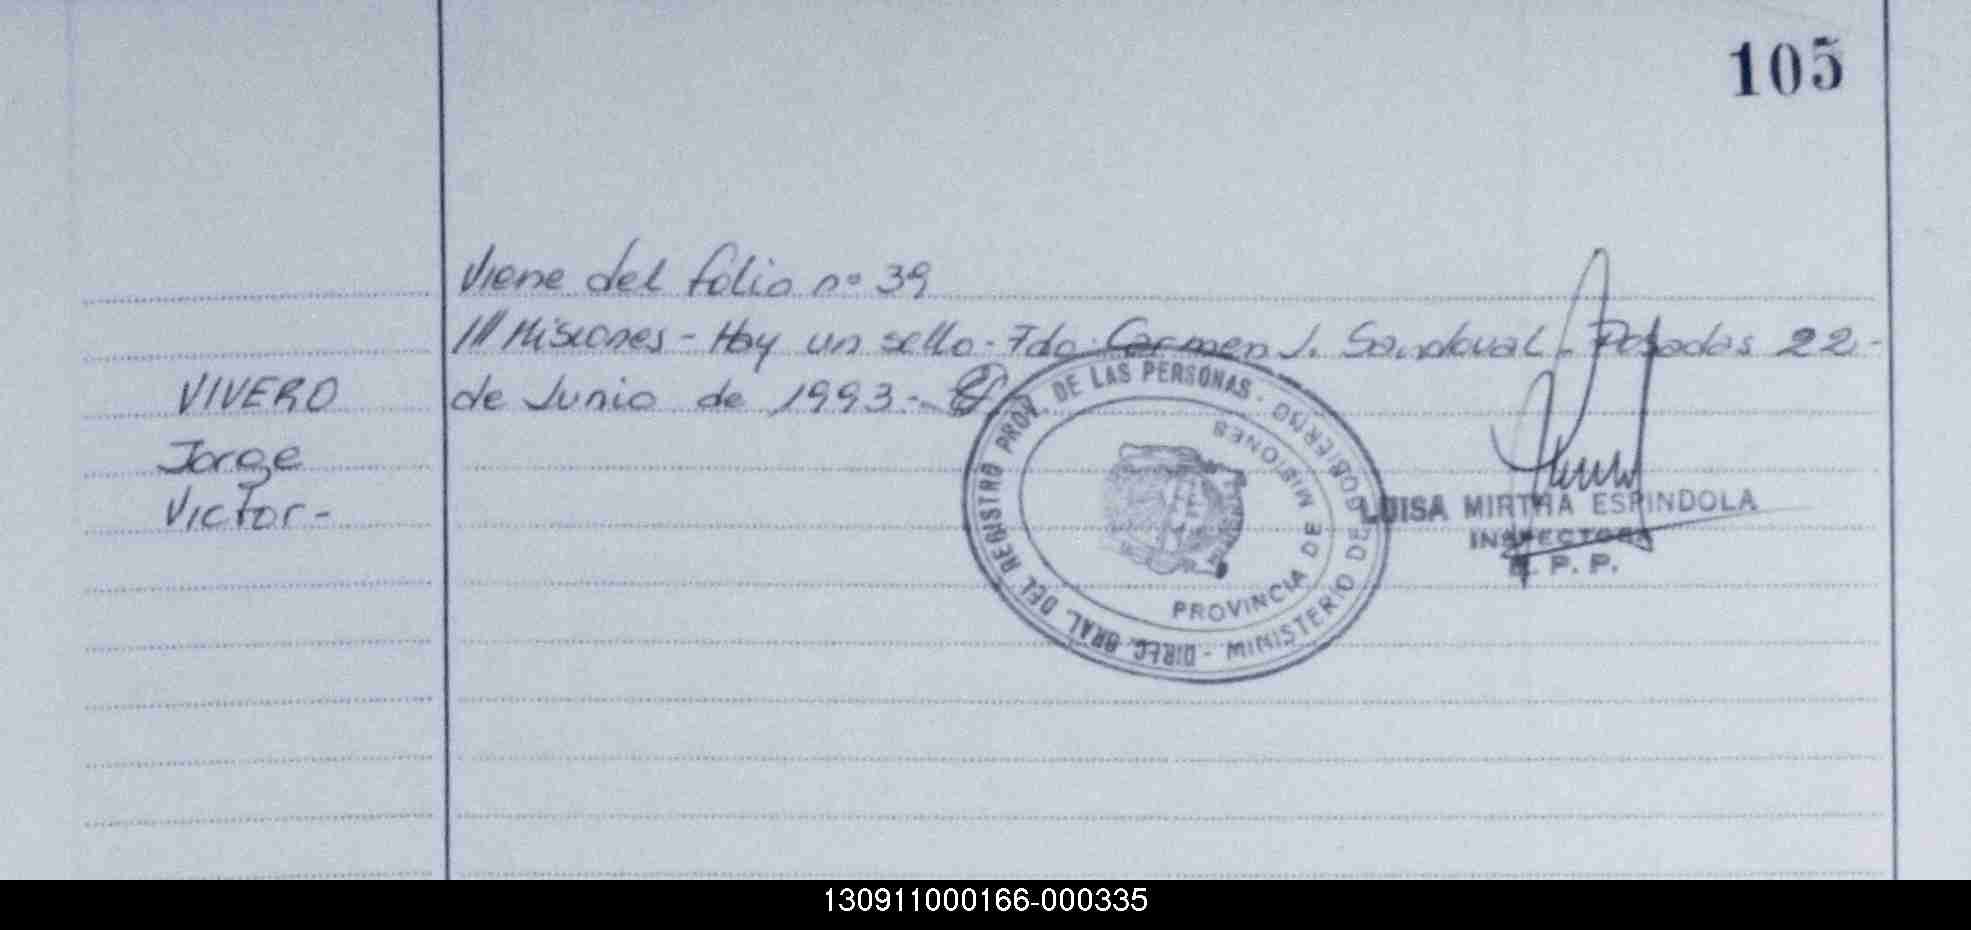 105
Viene del folio nº 39
/// Misiones - Hay un sello - Fdo. Carmen J. Sandoval - Posadas 22-
de Junio de 1993.-
VIVERO
Jorge
Victor-
DIREC. GRAL. DEL REGISTRO PROV. DE LAS PERSONAS - MINISTERIO DE GOBIERNO
PROVINCIA DE MISIONES
LUISA MIRTHA ESPINDOLA
INSPECTORA
R. P. P.
130911000166-000335